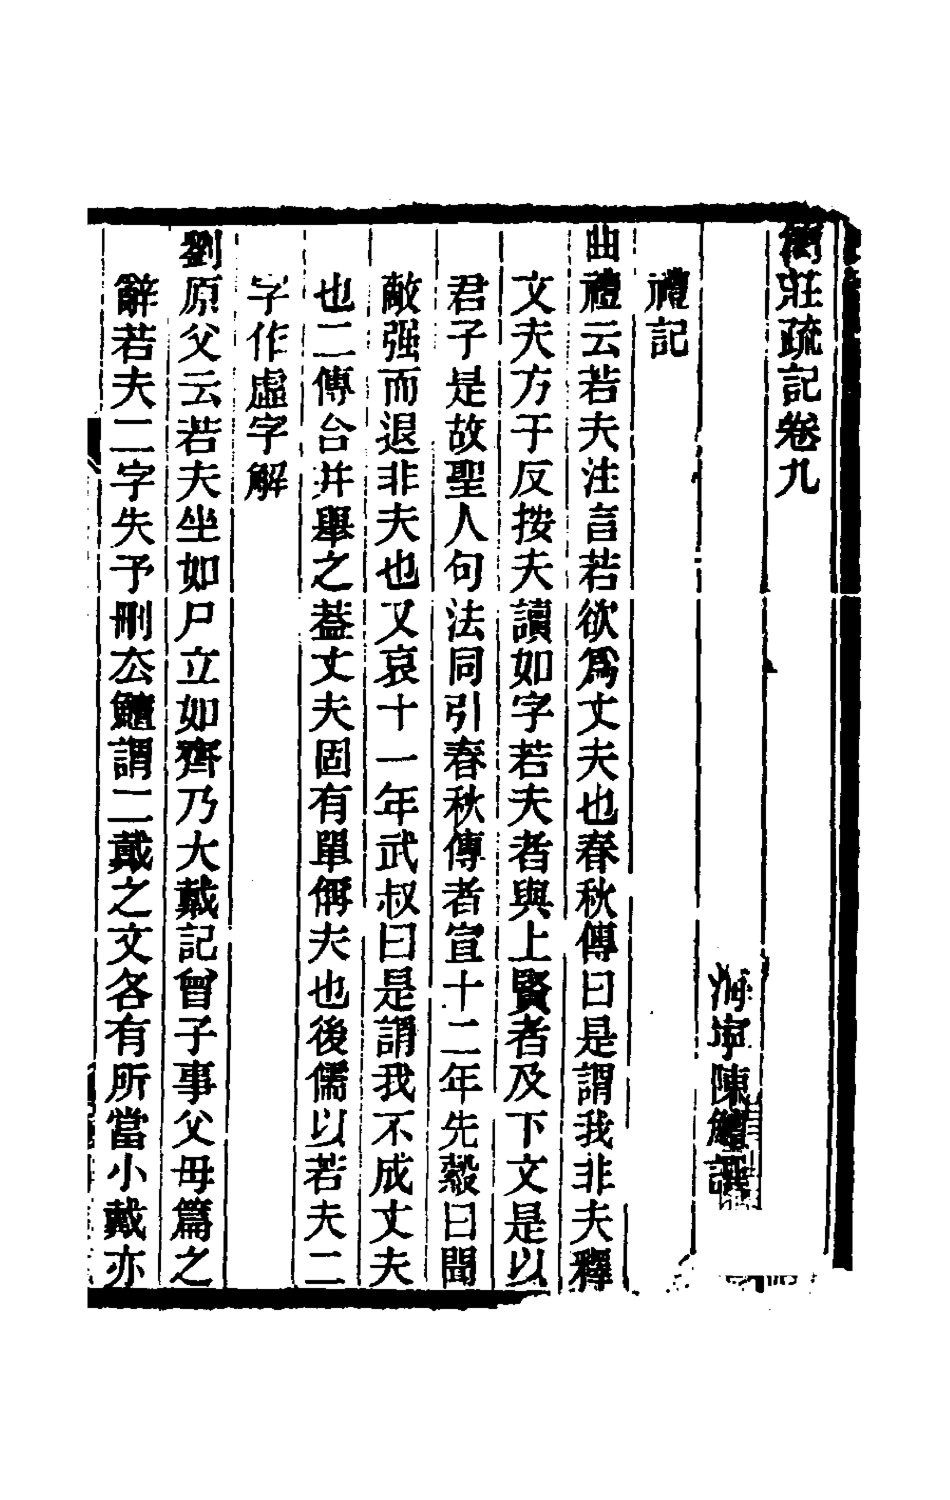 簡莊疏記卷九
海寧陳鱣譔
禮記
曲禮云若夫注言若欲爲丈夫也春秋傳曰是謂我非夫釋
文夫方于反按夫讀如字若夫者與上賢者及下文是以
君子是故聖人句法同引春秋傳者宣十二年先縠曰聞
敵强而退非夫也又哀十一年武叔曰是謂我不成丈夫
也二傳合幷舉之葢丈夫固有單偁夫也後儒以若夫二
字作虛字解
劉原父云若夫坐如尸立如齊乃大戴記曾子事父母篇之
辭若夫二字失予刪厺鱣謂二戴之文各有所當小戴亦